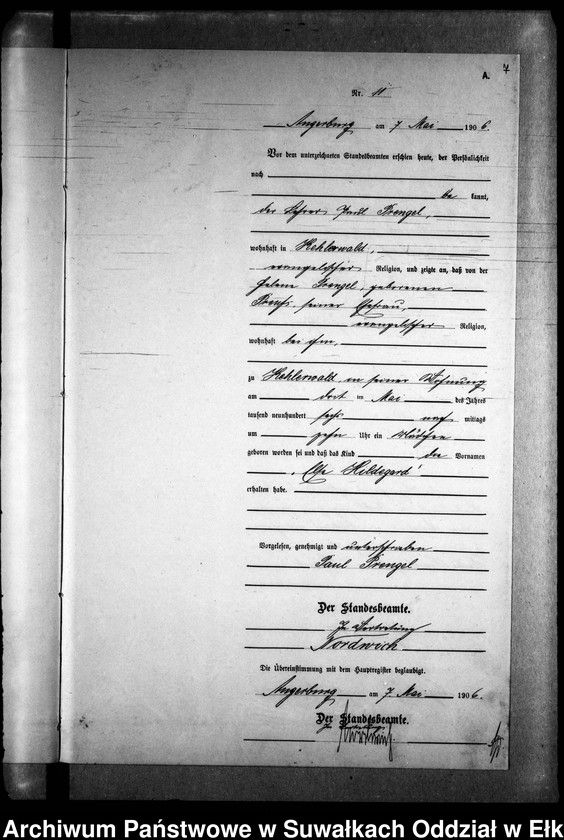 7
A.
Nr. 11
Angerburg am 7 Mai 1906.
Vor dem unterzeichneten Standesbeamten erschien heute, der Persönlichkeit
nach
be kannt,
der Lehrer Paul Prengel,
wohnhaft in Kehlerwald,
evangelischer Religion, und zeigte an, daß von der
Helene Prengel, geborenen
seiner Ehefrau,
evangelischer Religion,
wohnhaft bei ihm,
zu Kehlerwald, in seiner Wohnung
am Mai des Jahres
tausend neunhundert sechs nach mittags
um zehn Uhr ein Mädchen
geboren worden sei und daß das Kind die Vornamen
Hildegard
erhalten habe.
Vorgelesen, genehmigt und unterschrieben
Paul Prengel
Der Standesbeamte.
In Vertretung
Nordwich
Die Übereinstimmung mit dem Hauptregister beglaubigt.
Angerburg am 7 Mai 1906.
Der Standesbeamte.
In Vertretung
Archiwum Państwowe w Suwałkach Oddział w Ełk